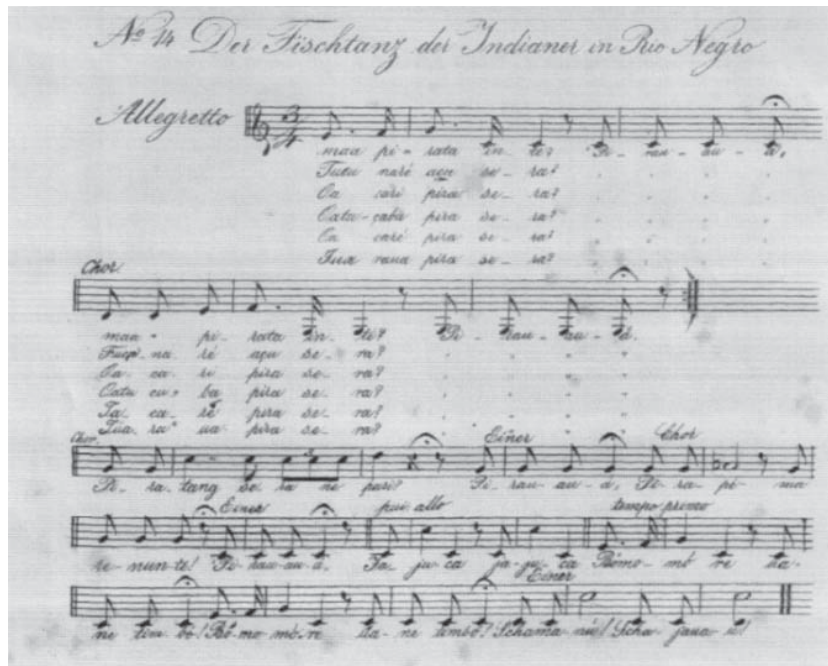 No 14 Der Fischtanz der Indianer in Rio Negro
Allegretto
3/4
maa pi- rata in- té? Pi- rau- au- á,
Tutu naré açu se- ra?
Oa cari pira se- ra?
Oatu- caba pira se- ra?
Oa caré pira se- ra?
Tua raua pira se- ra?
Chor.
maa- pi- rata in- té? Pi- rau- au- á.
na ré açu se- ra?
Oa- ca- ri pira se- ra?
Oatu cu- ba pira se- ra?
Ja ca- ré pira se- ra?
Tua- ra- ua pira se- ra?
Chor. Einer Chor
Pi- ra- tang se- ra ne pari? Pi- rau- au- á, Pi- ra- pi- ma
Einer piu allo tempo primo
re- nun- te! Pi- rau- au- á. Ja- ju- ca ja- ju- ca Bômo- mô re ta-
Einer
ne tim- bó! Bô- mo mô- re ta- ne timbo! Schama- niú! Scha- jaua ú!